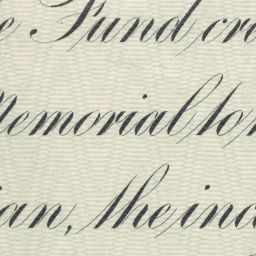 e Fund, cre
Memorial to
ian, the inc